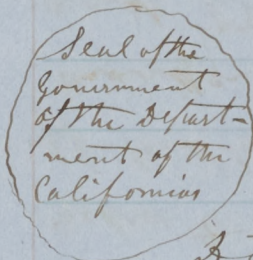 Seal of the
Government
of the Depart-
ment of the
Californias